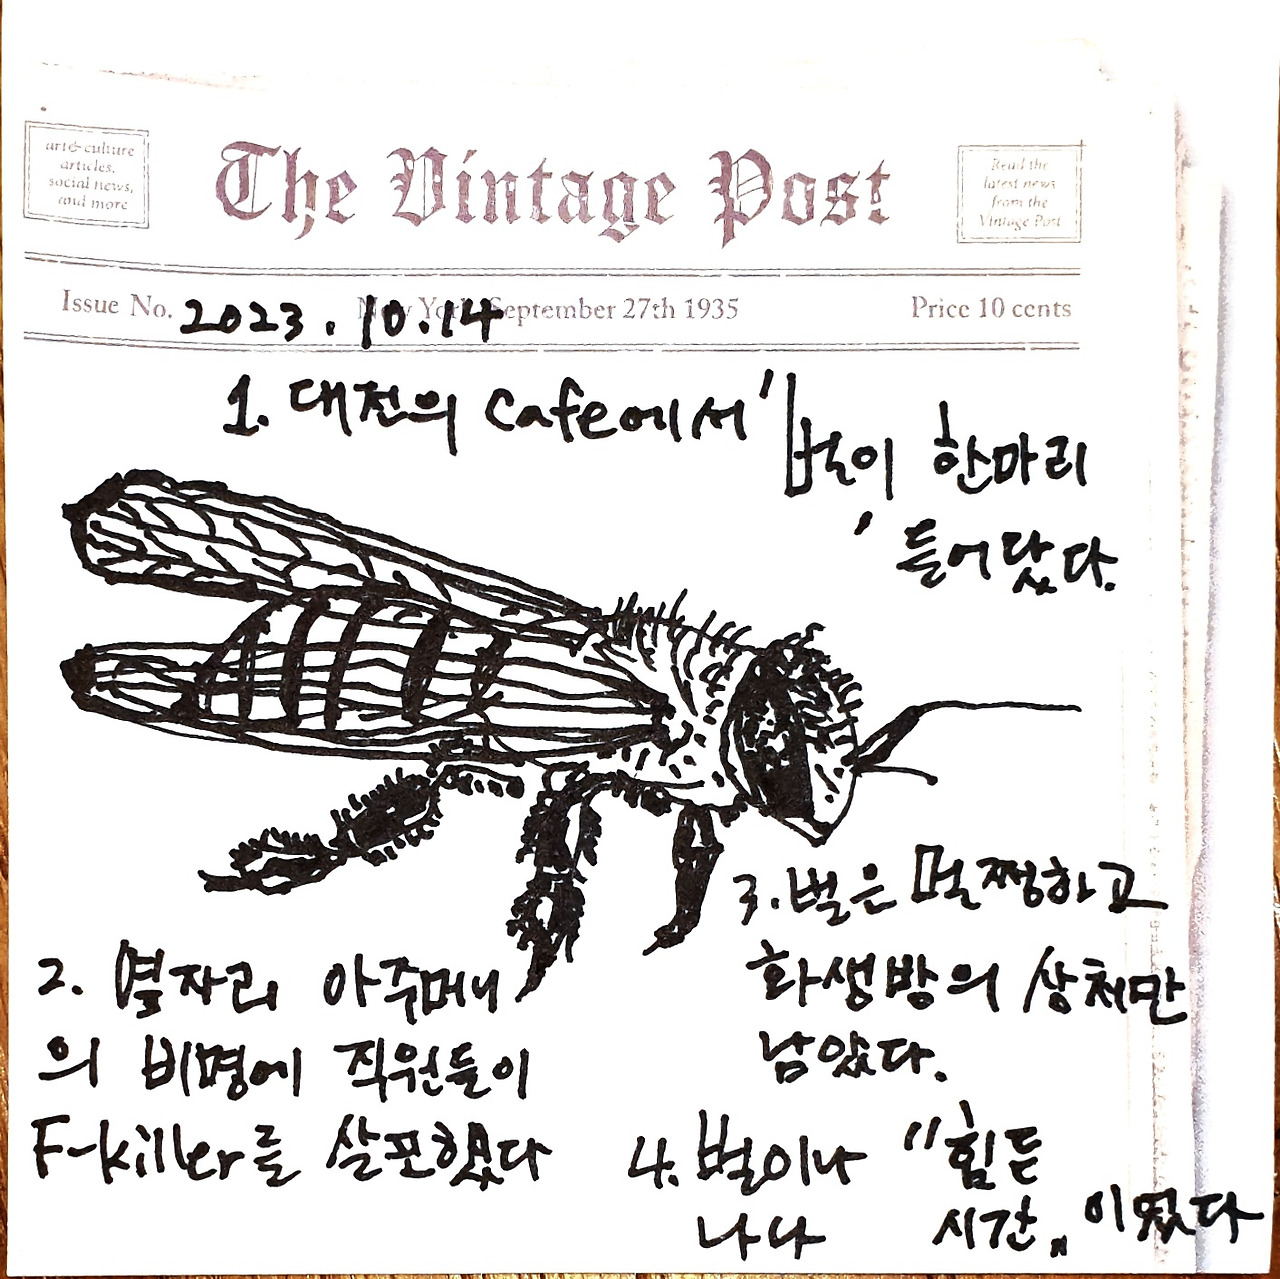 art & culture
articles,
social news,
and more
The Vintage Post
Read the
latest news
from the
Vintage Post
Issue No. 2023.10.14
New York September 27th 1935
Price 10 cents
1. 대전의 cafe에서 '벌이 한마리
' 들어왔다.
2. 옆자리 아주머니
의 비명에 직원들이
F-killer를 살포했다
3. 벌은 멀쩡하고
화생방의 상처만
남았다.
4. 벌이나 "힘든
나나 시간" 이었다